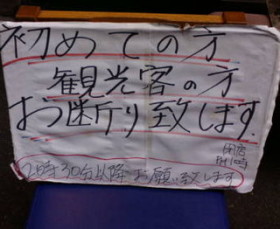 初めての方
観光客の方
お断り致します
閉店
2時30分以降お願い致します